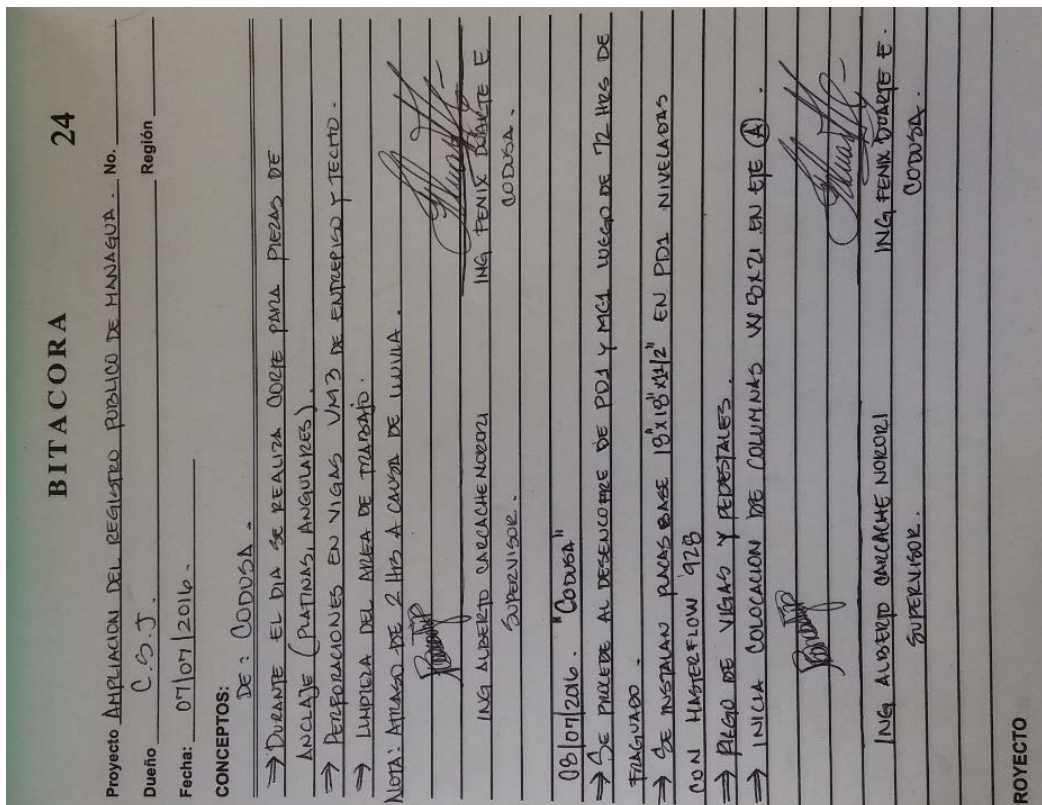 BITACORA 24
Proyecto AMPLIACION DEL REGISTRO PUBLICO DE MANAGUA. No.
Dueño C.S.J. Región
Fecha: 07/07/2016.
CONCEPTOS:
DE: CODUSA.
⇒ DURANTE EL DIA SE REALIZA CORTE PARA PIEZAS DE
ANCLAJE (PLATINAS, ANGULARES).
⇒ PERFORACIONES EN VIGAS VM3 DE ENTREPISO Y TECHO.
⇒ LIMPIEZA DEL AREA DE TRABAJO.
NOTA: ATRASO DE 2 HRS A CAUSA DE LLUVIA.
ING ALBERTO CARCACHE NORORI ING FENIX DUARTE E
SUPERVISOR. CODUSA.
08/07/2016. "CODUSA"
⇒ SE PROCEDE AL DESENCOFRE DE PD1 Y MC1 LUEGO DE 72 HRS DE
FRAGUADO.
⇒ SE INSTALAN PLACAS BASE 18"x18"x1/2" EN PD1 NIVELADAS
CON MASTERFLOW 928
⇒ RIEGO DE VIGAS Y PEDESTALES.
⇒ INICIA COLOCACION DE COLUMNAS W8x21 EN EJE A.
ING ALBERTO CARCACHE NORORI ING FENIX DUARTE E.
SUPERVISOR. CODUSA.
ROYECTO